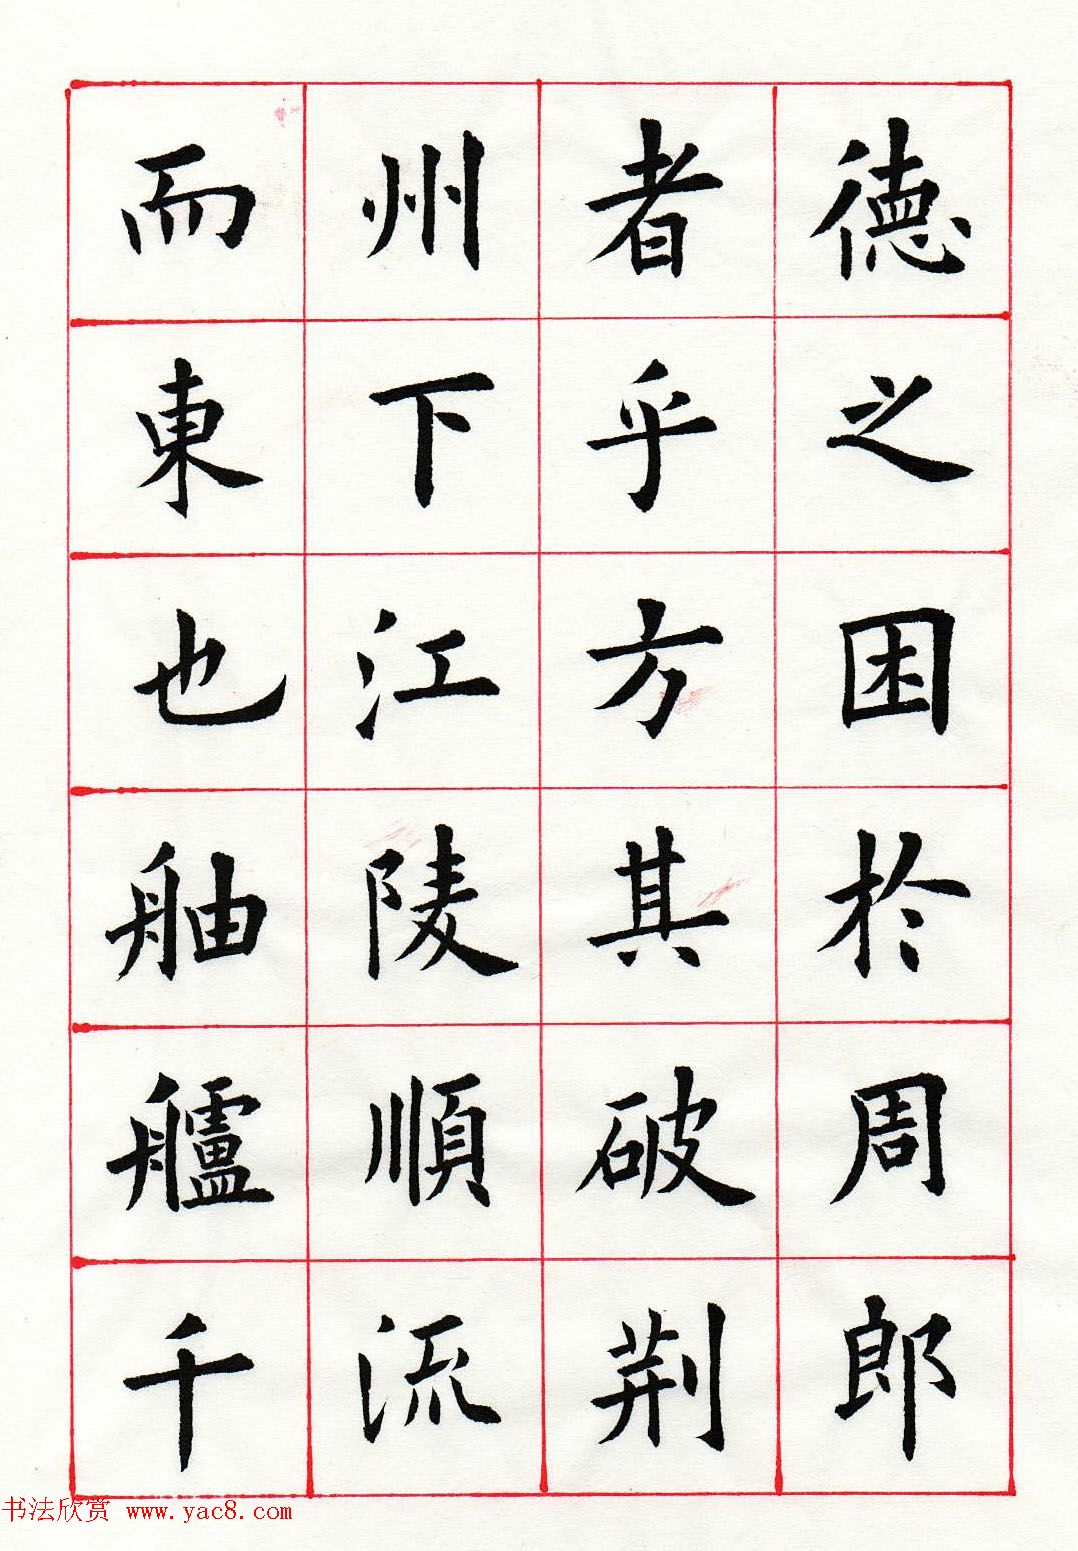 德之困於周郎
者乎方其破荆
州下江陵順流
而東也舳艫千
书法欣赏 www.yac8.com